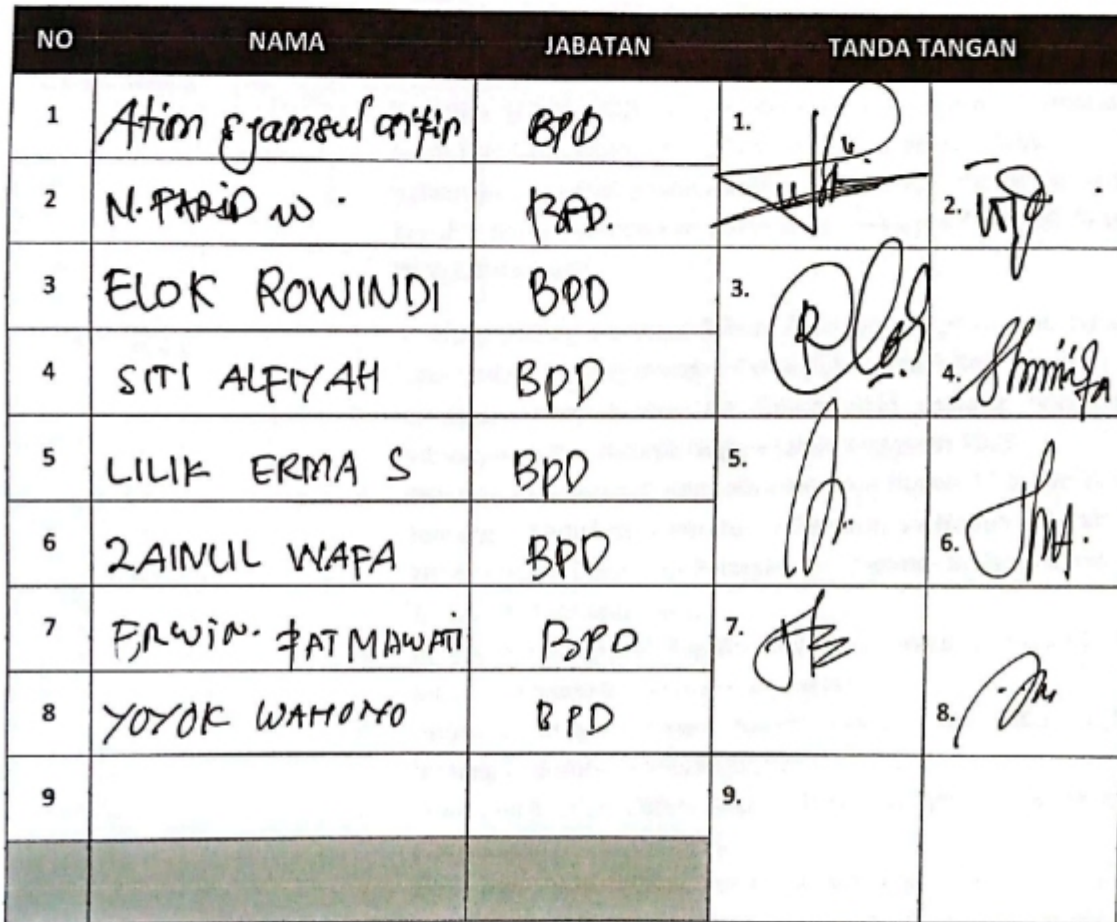 NO NAMA JABATAN TANDA TANGAN
1 Atim Syamsul arifin BPD 1.
2 M. FARID W. BPD. 2.
3 ELOK ROWINDI BPD 3.
4 SITI ALFIYAH BPD 4.
5 LILIK ERMA S BPD 5.
6 ZAINUL WAFA BPD 6.
7 ERWIN. FATMAWATI BPD 7.
8 YOYOK WAHONO BPD 8.
9 9.